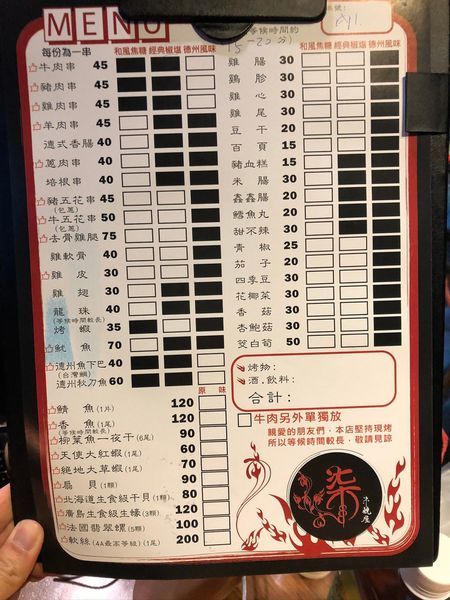 MENU
(等候時間約
15-20分)
每份為一串
和風焦糖 經典椒塩 德州風味
牛肉串 45
豬肉串 45
雞肉串 45
羊肉串 45
德式香腸 40
蔥肉串 40
培根串 40
豬五花串 45
(包蔥)
牛五花串 50
(包蔥)
去骨雞腿 75
雞軟骨 40
雞皮 30
雞翅 30
龍珠
(等候時間較長)
烤蝦 35
魷魚 70
德州魚下巴 40
(台灣鯛)
德州秋刀魚 60
原味
鯖魚(1片) 120
香魚(1尾) 90
(等候時間較長)
柳葉魚一夜干(6尾) 60
天使大紅蝦(1尾) 90
絕地大草蝦(1尾) 160
扇貝(1顆) 90
北海道生食級干貝(1顆) 80
廣島生食級生蠔(3顆) 120
法國翡翠螺(5顆) 100
軟絲(4A最高等級)(1尾) 200
和風焦糖 經典椒塩 德州風味
雞腸 30
雞胗 30
雞心 30
雞尾 30
豆干 20
百頁 15
豬血糕 15
米腸 30
鑫鑫腸 20
鱈魚丸 20
甜不辣 30
青椒 25
茄子 20
四季豆 30
花椰菜 30
香菇 30
杏鮑菇 30
筊白筍 50
烤物:
酒.飲料:
合計:
牛肉另外單獨放
親愛的朋友們,本店堅持現烤
所以等候時間較長,敬請見諒
柒串
串燒屋